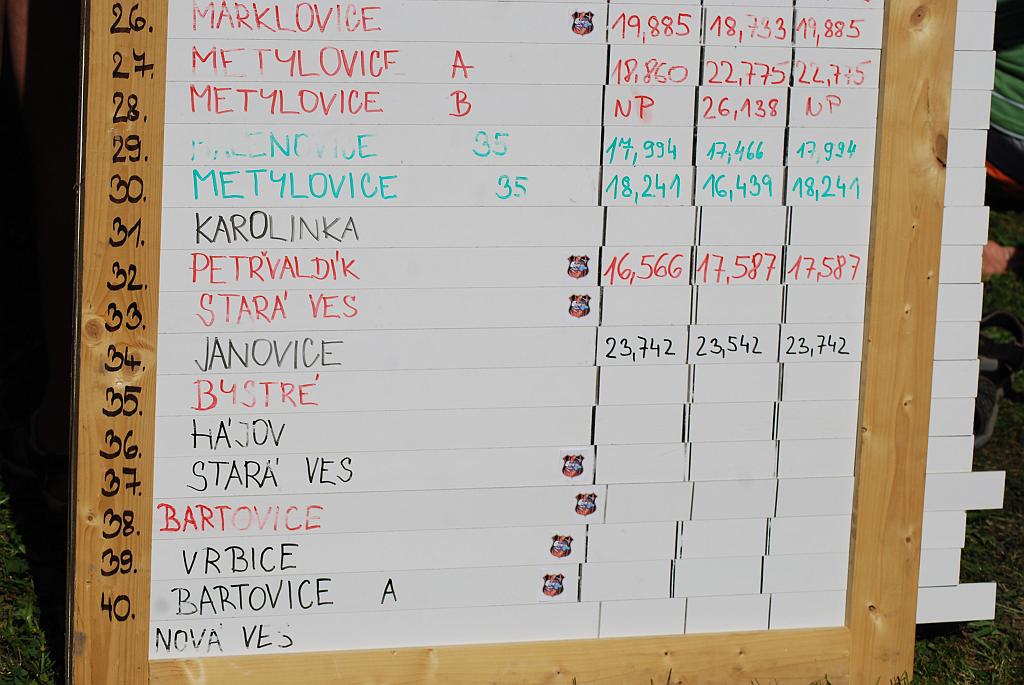 26. MARKLOVICE 19,885 18,733 19,885
27. METYLOVICE A 18,860 22,775 22,775
28. METYLOVICE B NP 26,138 NP
29. MALENOVICE 35 17,994 17,466 17,994
30. METYLOVICE 35 18,241 16,439 18,241
31. KAROLINKA
32. PETŘVALDÍK 16,566 17,587 17,587
33. STARÁ VES
34. JANOVICE 23,742 23,542 23,742
35. BYSTRÉ
36. HÁJOV
37. STARÁ VES
38. BARTOVICE
39. VRBICE
40. BARTOVICE A
NOVÁ VES